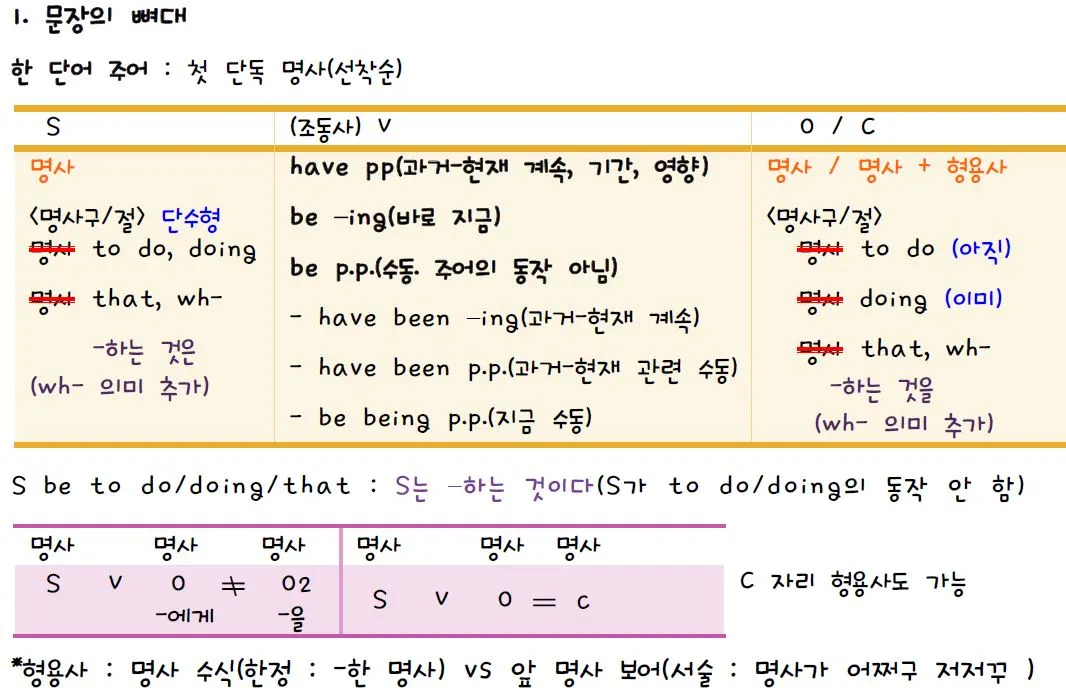 1. 문장의 뼈대
한 단어 주어 : 첫 단독 명사(선착순)
S (조동사) V O / C
명사 have pp(과거-현재 계속, 기간, 영향) 명사 / 명사 + 형용사
<명사구/절> 단수형 be -ing(바로 지금) <명사구/절>
명사 to do, doing be p.p.(수동. 주어의 동작 아님) 명사 to do (아직)
명사 that, wh- - have been -ing(과거-현재 계속) 명사 doing (이미)
-하는 것은 - have been p.p.(과거-현재 관련 수동) 명사 that, wh-
(wh- 의미 추가) - be being p.p.(지금 수동) -하는 것을
(wh- 의미 추가)
S be to do/doing/that : S는 -하는 것이다(S가 to do/doing의 동작 안 함)
명사 명사 명사 명사 명사 명사
S V O ≠ O2 S V O = C C 자리 형용사도 가능
-에게 -을
*형용사 : 명사 수식(한정 : -한 명사) vs 앞 명사 보어(서술 : 명사가 어쩌구 저저꾸 )